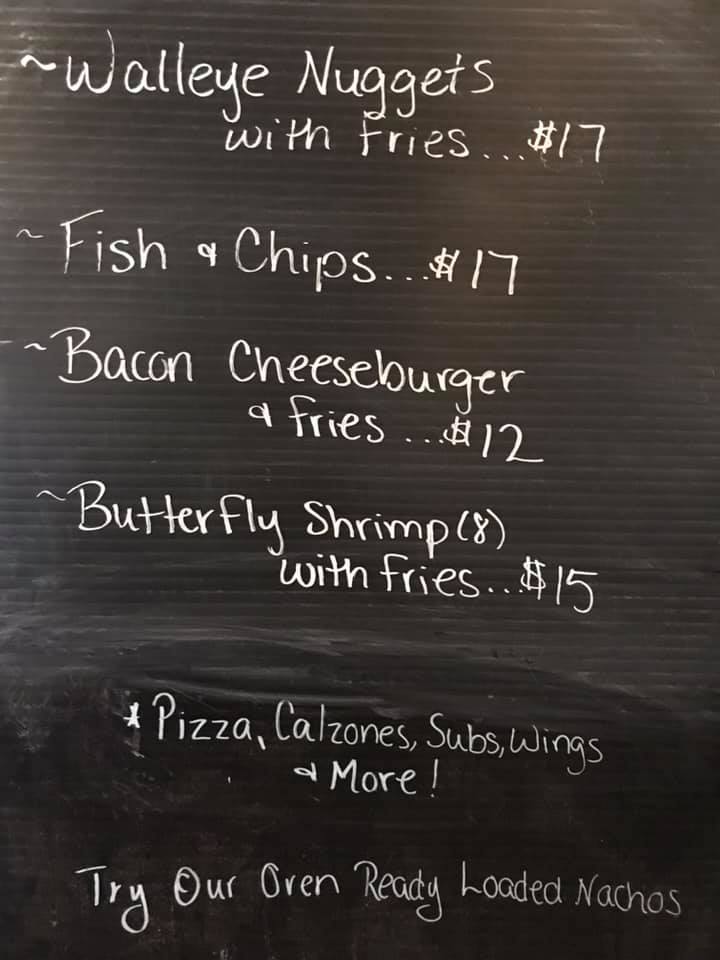 ~Walleye Nuggets
with Fries...$17
~Fish & Chips...$17
~Bacon Cheeseburger
& fries...$12
~Butterfly Shrimp(8)
with fries...$15
*Pizza, Calzones, Subs, Wings
& More!
Try Our Oven Ready Loaded Nachos